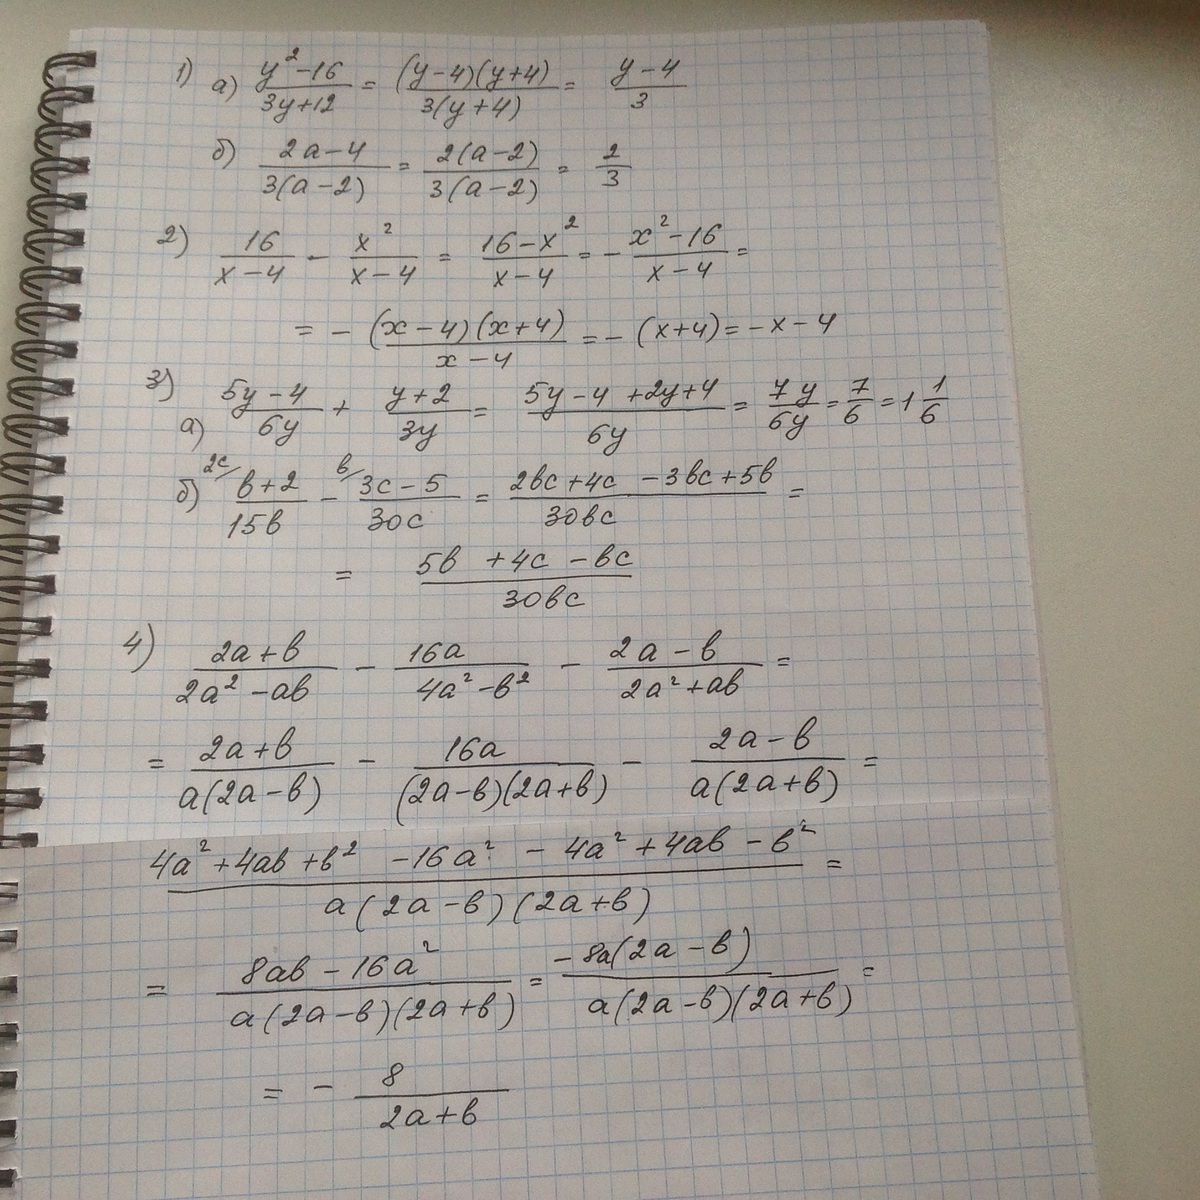 1) а) (y² - 16)/(3y + 12) = ((y - 4)(y + 4))/(3(y + 4)) = (y - 4)/3
б) (2a - 4)/(3(a - 2)) = (2(a - 2))/(3(a - 2)) = 2/3
2) 16/(x - 4) - x²/(x - 4) = (16 - x²)/(x - 4) = - (x² - 16)/(x - 4) =
= - ((x - 4)(x + 4))/(x - 4) = - (x + 4) = - x - 4
3)
а) (5y - 4)/(6y) + (y + 2)/(3y) = (5y - 4 + 2y + 4)/(6y) = (7y)/(6y) = 7/6 = 1 1/6
б) 2c/ (b + 2)/(15b) - b/ (3c - 5)/(30c) = (2bc + 4c - 3bc + 5b)/(30bc) =
= (5b + 4c - bc)/(30bc)
4) (2a + b)/(2a² - ab) - (16a)/(4a² - b²) - (2a - b)/(2a² + ab) =
= (2a + b)/(a(2a - b)) - (16a)/((2a - b)(2a + b)) - (2a - b)/(a(2a + b)) =
(4a² + 4ab + b² - 16a² - 4a² + 4ab - b²)/(a(2a - b)(2a + b)) =
= (8ab - 16a²)/(a(2a - b)(2a + b)) = (-8a(2a - b))/(a(2a - b)(2a + b)) =
= - 8/(2a + b)